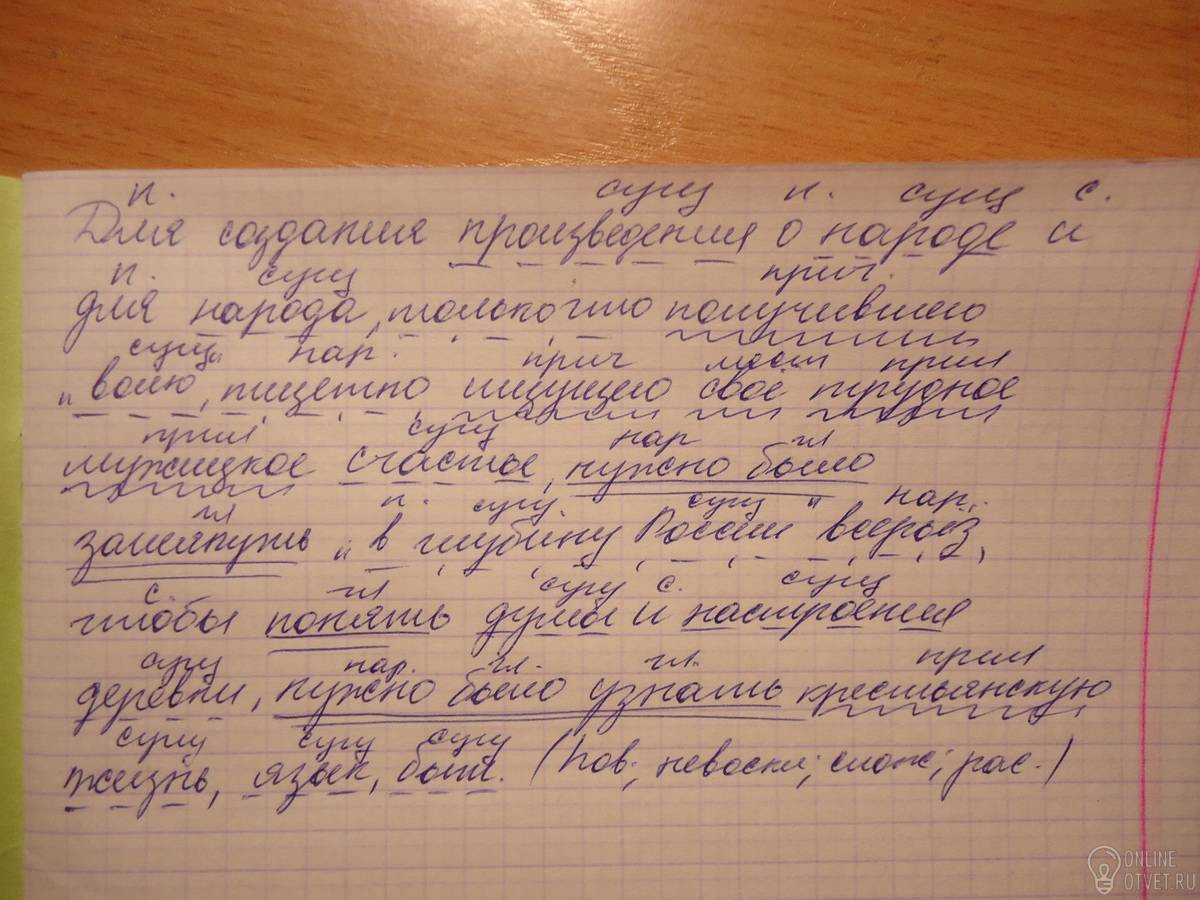 п. сущ п. сущ с.
Для создания произведения о народе и
п. сущ прич.
для народа, только что получившего
сущ нар. прич мест прил
"волю, тщетно ищущего своё трудное
прил сущ нар гл
мужицкое счастье, нужно было
гл п. сущ. сущ нар.
заглянуть "в глубину России" всерьез,
с. гл сущ с. сущ
чтобы понять думы и настроения
сущ нар. гл. гл. прил
деревни, нужно было узнать крестьянскую
сущ сущ сущ
жизнь, язык, быт. (Пов.; невоскл; слож; рас.)
ONLINE
OTVET.RU